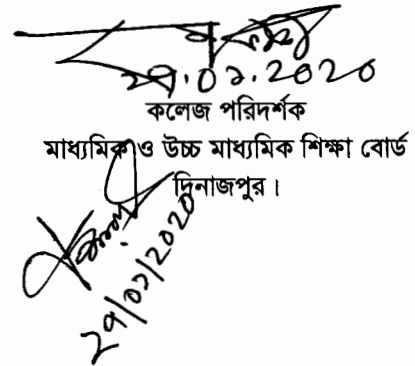 ২৭.০১.2020
কলেজ পরিদর্শক
মাধ্যমিক ও উচ্চ মাধ্যমিক শিক্ষা বোর্ড
দিনাজপুর।
২৭/০১/2020